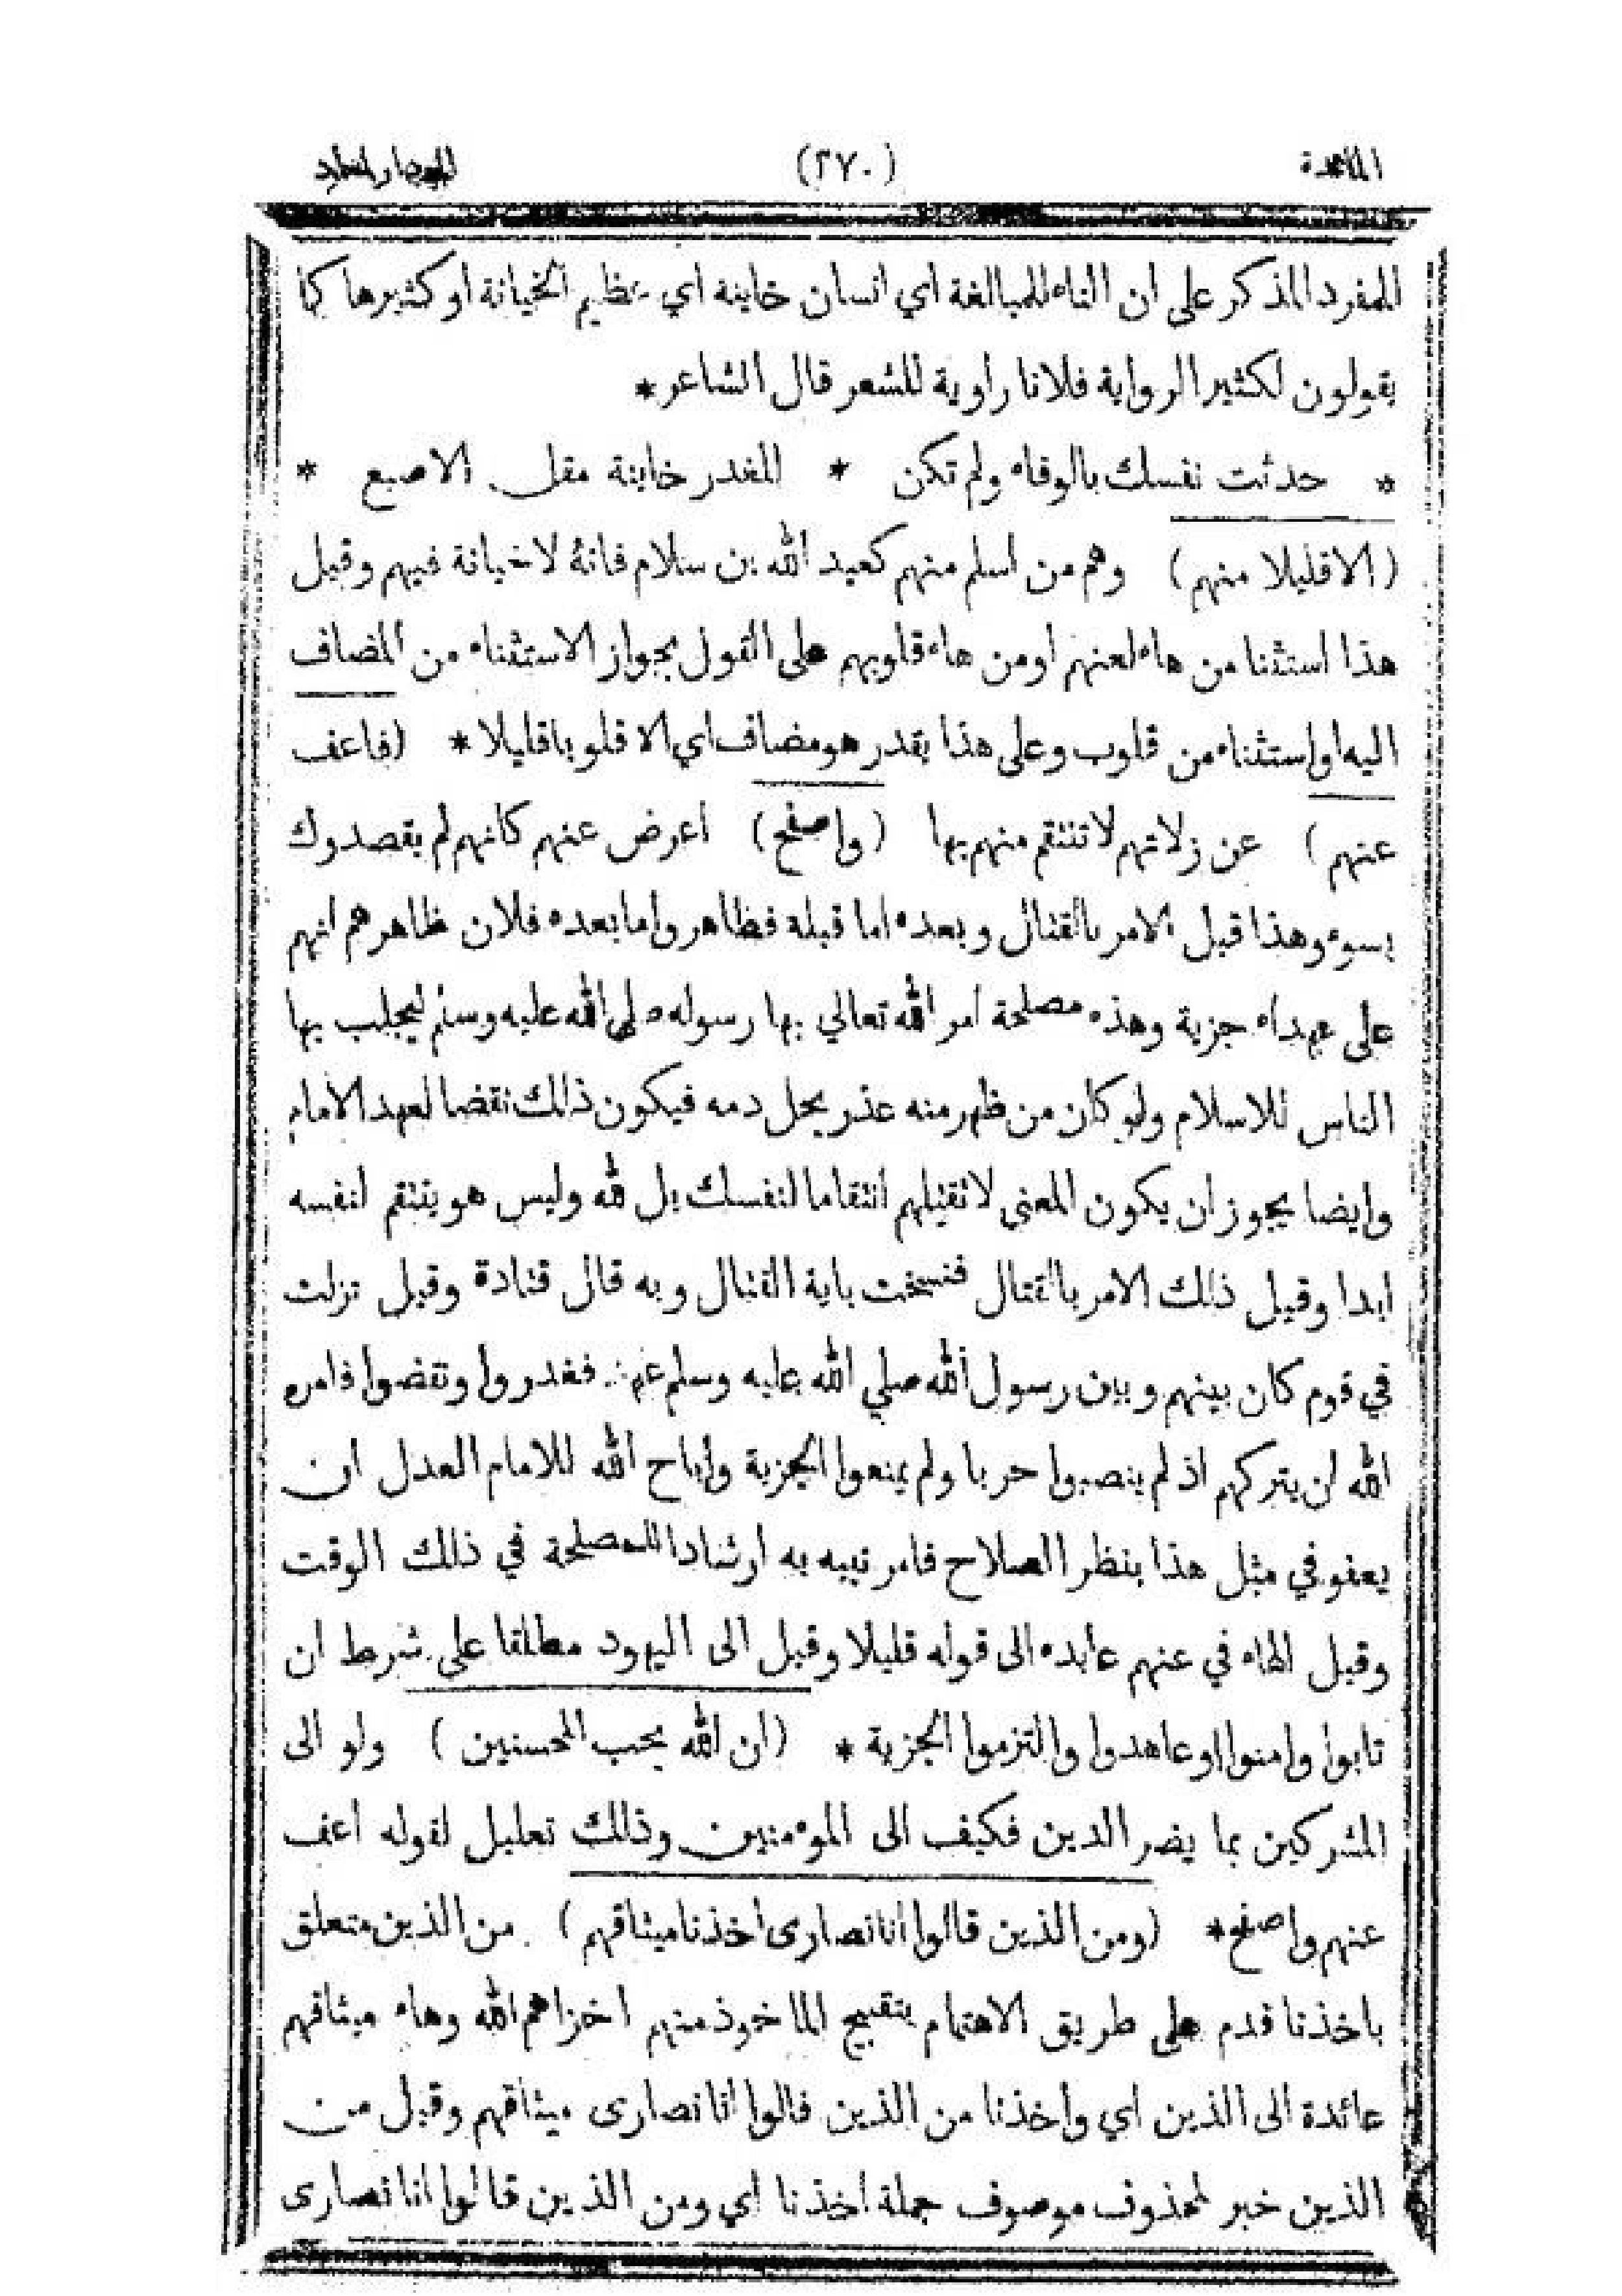 المائدة (٢٧٠)
للمفرد المذكر على ان التاء للمبالغة اي انسان خاينة اي عظيم الخيانة او كثيرها كما
يقولون لكثير الرواية فلانا راوية للشعر قال الشاعر *
* حدثت نفسك بالوفاء ولم تكن * للغدر خاينة مقل الاصبع *
(الا قليلا منهم) وهم من اسلم منهم كعبد الله بن سلام فانه لا خيانة فيهم وقيل
هذا استثنا من هاء لعنهم او من هاء قلوبهم على القول بجواز الاستثناء من المضاف
اليه او استثناء من قلوب وعلى هذا يقدر هو مضاف اي الا قلوبا قليلا * (فاعف
عنهم) عن زلاتهم لا تنتقم منهم بها (واصفح) اعرض عنهم كانهم لم يقصدوك
بسوء وهذا قبل الامر بالقتال وبعده اما قبله فظاهر واما بعده فلان ظاهرهم انهم
على عهداء جزية وهذه مصلحة امر الله تعالي بها رسوله صلى الله عليه وسلم ليجلب بها
الناس للاسلام ولو كان من ظهر منه عذر يحل دمه فيكون ذالك نقضا لعهد الامام
وايضا يجوز ان يكون المعنى لا تقتلهم انتقاما لنفسك بل لله وليس هو ينتقم لنفسه
ابدا وقيل ذلك الامر بالقتال فنسخت باية القتال وبه قال قتادة وقيل نزلت
في قوم كان بينهم وبين رسول الله صلي الله عليه وسلم عهد فغدروا ونقضوا فامره
الله ان يتركهم اذ لم ينصبوا حربا ولم يمنعوا الجزية واباح الله للامام العدل ان
يعفو في مثل هذا بنظر الصلاح فامر نبيه به ارشادا للمصلحة في ذلك الوقت
وقيل الهاء في عنهم عايده الى قوله قليلا وقيل الى اليهود مطلقا على شرط ان
تابوا وامنوا او عاهدوا والتزموا الجزية * (ان الله يحب المحسنين) ولو الى
المشركين بما يضر الدين فكيف الى المومنين وذالك تعليل لقوله اعف
عنهم واصفح * (ومن الذين قالوا انا نصارى اخذنا ميثاقهم) من الذين متعلق
باخذنا قدم على طريق الاهتمام بتقبيح الماخوذ منهم اخزاهم الله وهاء ميثاقهم
عائدة الى الذين اي واخذنا من الذين قالوا انا نصارى ميثاقهم وقيل من
الذين خبر لمحذوف موصوف جملة اخذنا اي ومن الذين قالوا انا نصارى